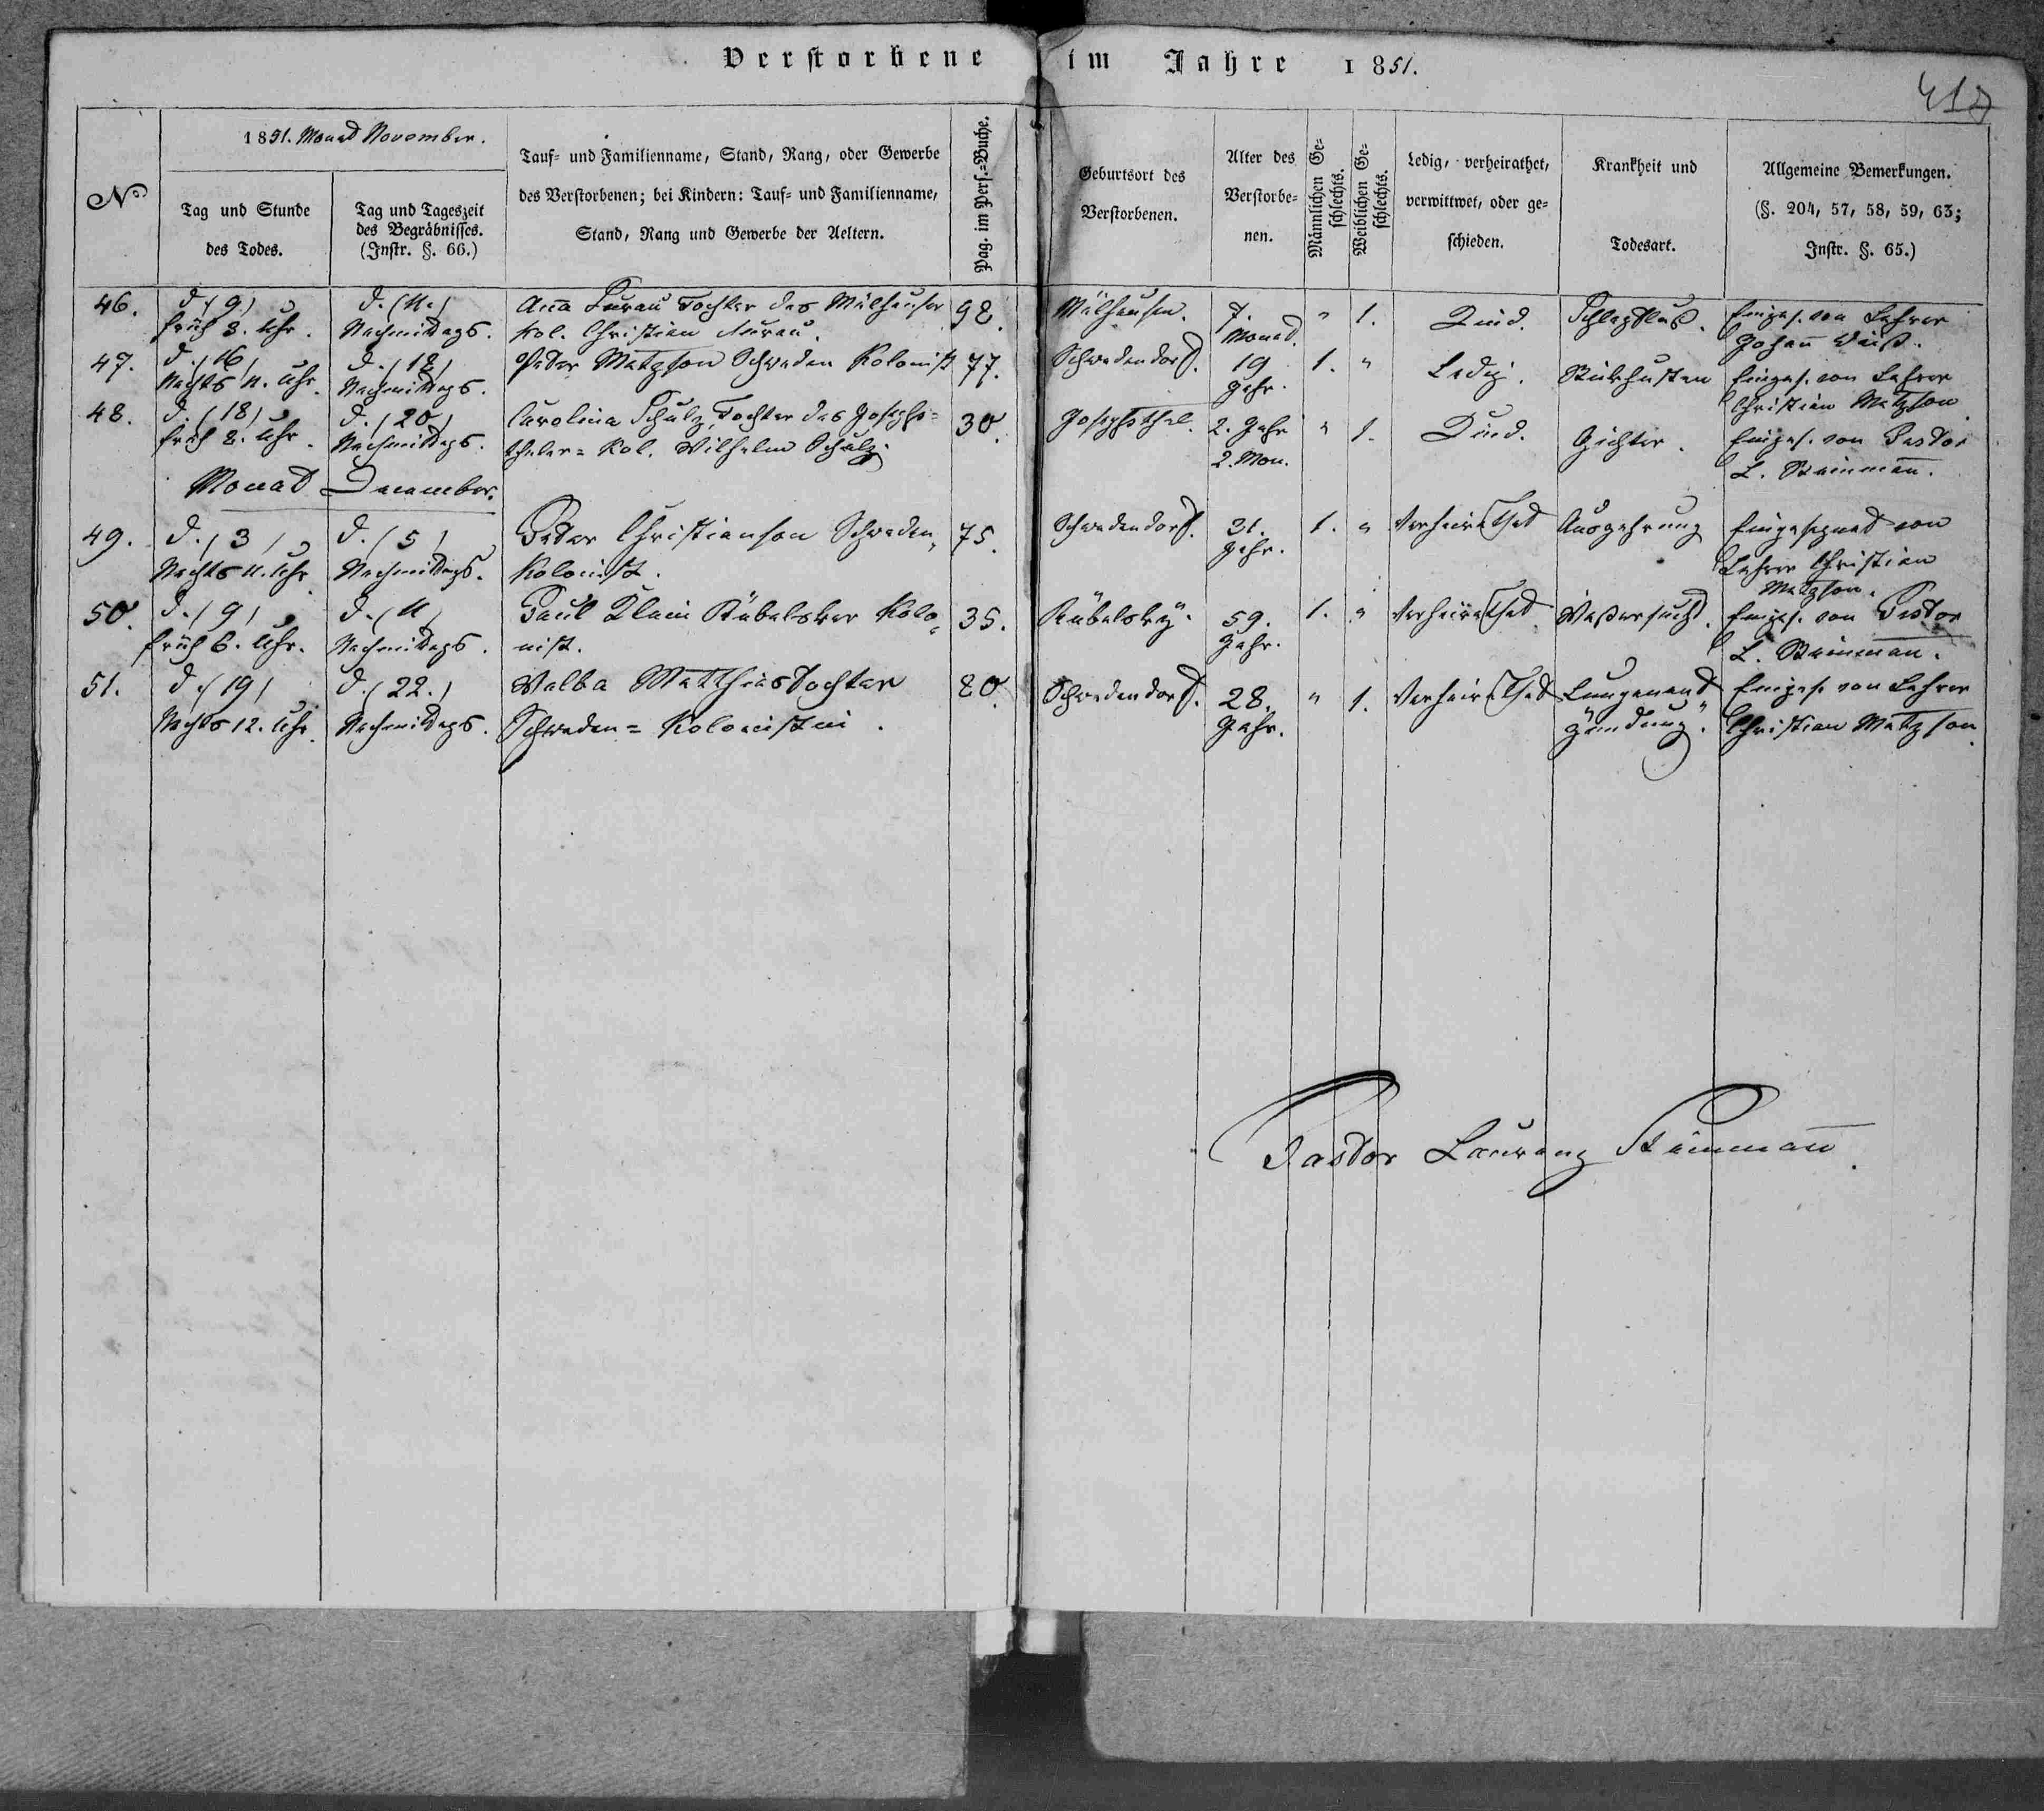 Verstorbene im Jahre 1851.
1851. Monat November.
No
Tag und Stunde
des Todes.
Tag und Tageszeit
des Begräbnisses.
(Instr. §. 66.)
Tauf- und Familienname, Stand, Rang, oder Gewerbe
des Verstorbenen; bei Kindern: Tauf- und Familienname,
Stand, Rang und Gewerbe der Aeltern.
Pag. im Pers.-Buche.
Geburtsort des
Verstorbenen.
Alter des
Verstorbe-
nen.
Männlichen Ge-
schlechts.
Weiblichen Ge-
schlechts.
Ledig, verheirathet,
verwittwet, oder ge-
schieden.
Krankheit und
Todesart.
Allgemeine Bemerkungen.
(§. 204, 57, 58, 59, 63;
Instr. §. 65.)
46.
d. (9)
früh 8. Uhr.
d. (11.)
Nachmittags.
Anna Tochter des Mülhauser
Kol. Christian
98.
Mülhausen.
7.
Monat.
" 1.
Kind.
Schlagfluß.
Einges. von Lehrer
Johann
47.
d. (16)
Nachts 11. Uhr.
d. (18)
Nachmittags.
Peter Matzson Schweden Kolonist
77.
Schwedendorf.
19
Jahr.
1. "
Ledig.
Stickhusten
Einges. von Lehrer
Christian Matzson
48.
d. (18)
früh 8. Uhr.
d. (20)
Nachmittags.
Carolina Schulz, Tochter des Josephs-
thaler= Kol. Wilhelm Schulz.
30.
Josephsthal.
2. Jahr
2. Mon.
" 1.
Kind.
Gichter.
Einges. von Pastor
L. Steinmann.
Monat December.
49.
d. (3)
Nachts 11. Uhr
d. (5)
Nachmittags.
Peter Christianson Schweden-
Kolonist.
75.
Schwedendorf.
31.
Jahr.
1. "
Verheirathet
Auszehrung
Eingesegnet von
Lehrer Christian
Matzson.
50.
d. (9)
früh 6. Uhr.
d. (11)
Nachmittags.
Paul Klein Kübelsker Kolo-
nist.
35.
Kübelsky.
59.
Jahr.
1. "
Verheirathet
Waßersucht.
Einges. von Pastor
L. Steinmann.
51.
d. (19)
Nachts 12. Uhr.
d. (22.)
Nachmittags.
Malba Matthiastochter
Schweden= Kolonistin.
80.
Schwedendorf.
28.
Jahr.
" 1.
Verheirathet
Lungenent-
zündung.
Einges. von Lehrer
Christian Matzson
Pastor Laurenz Steinmann.